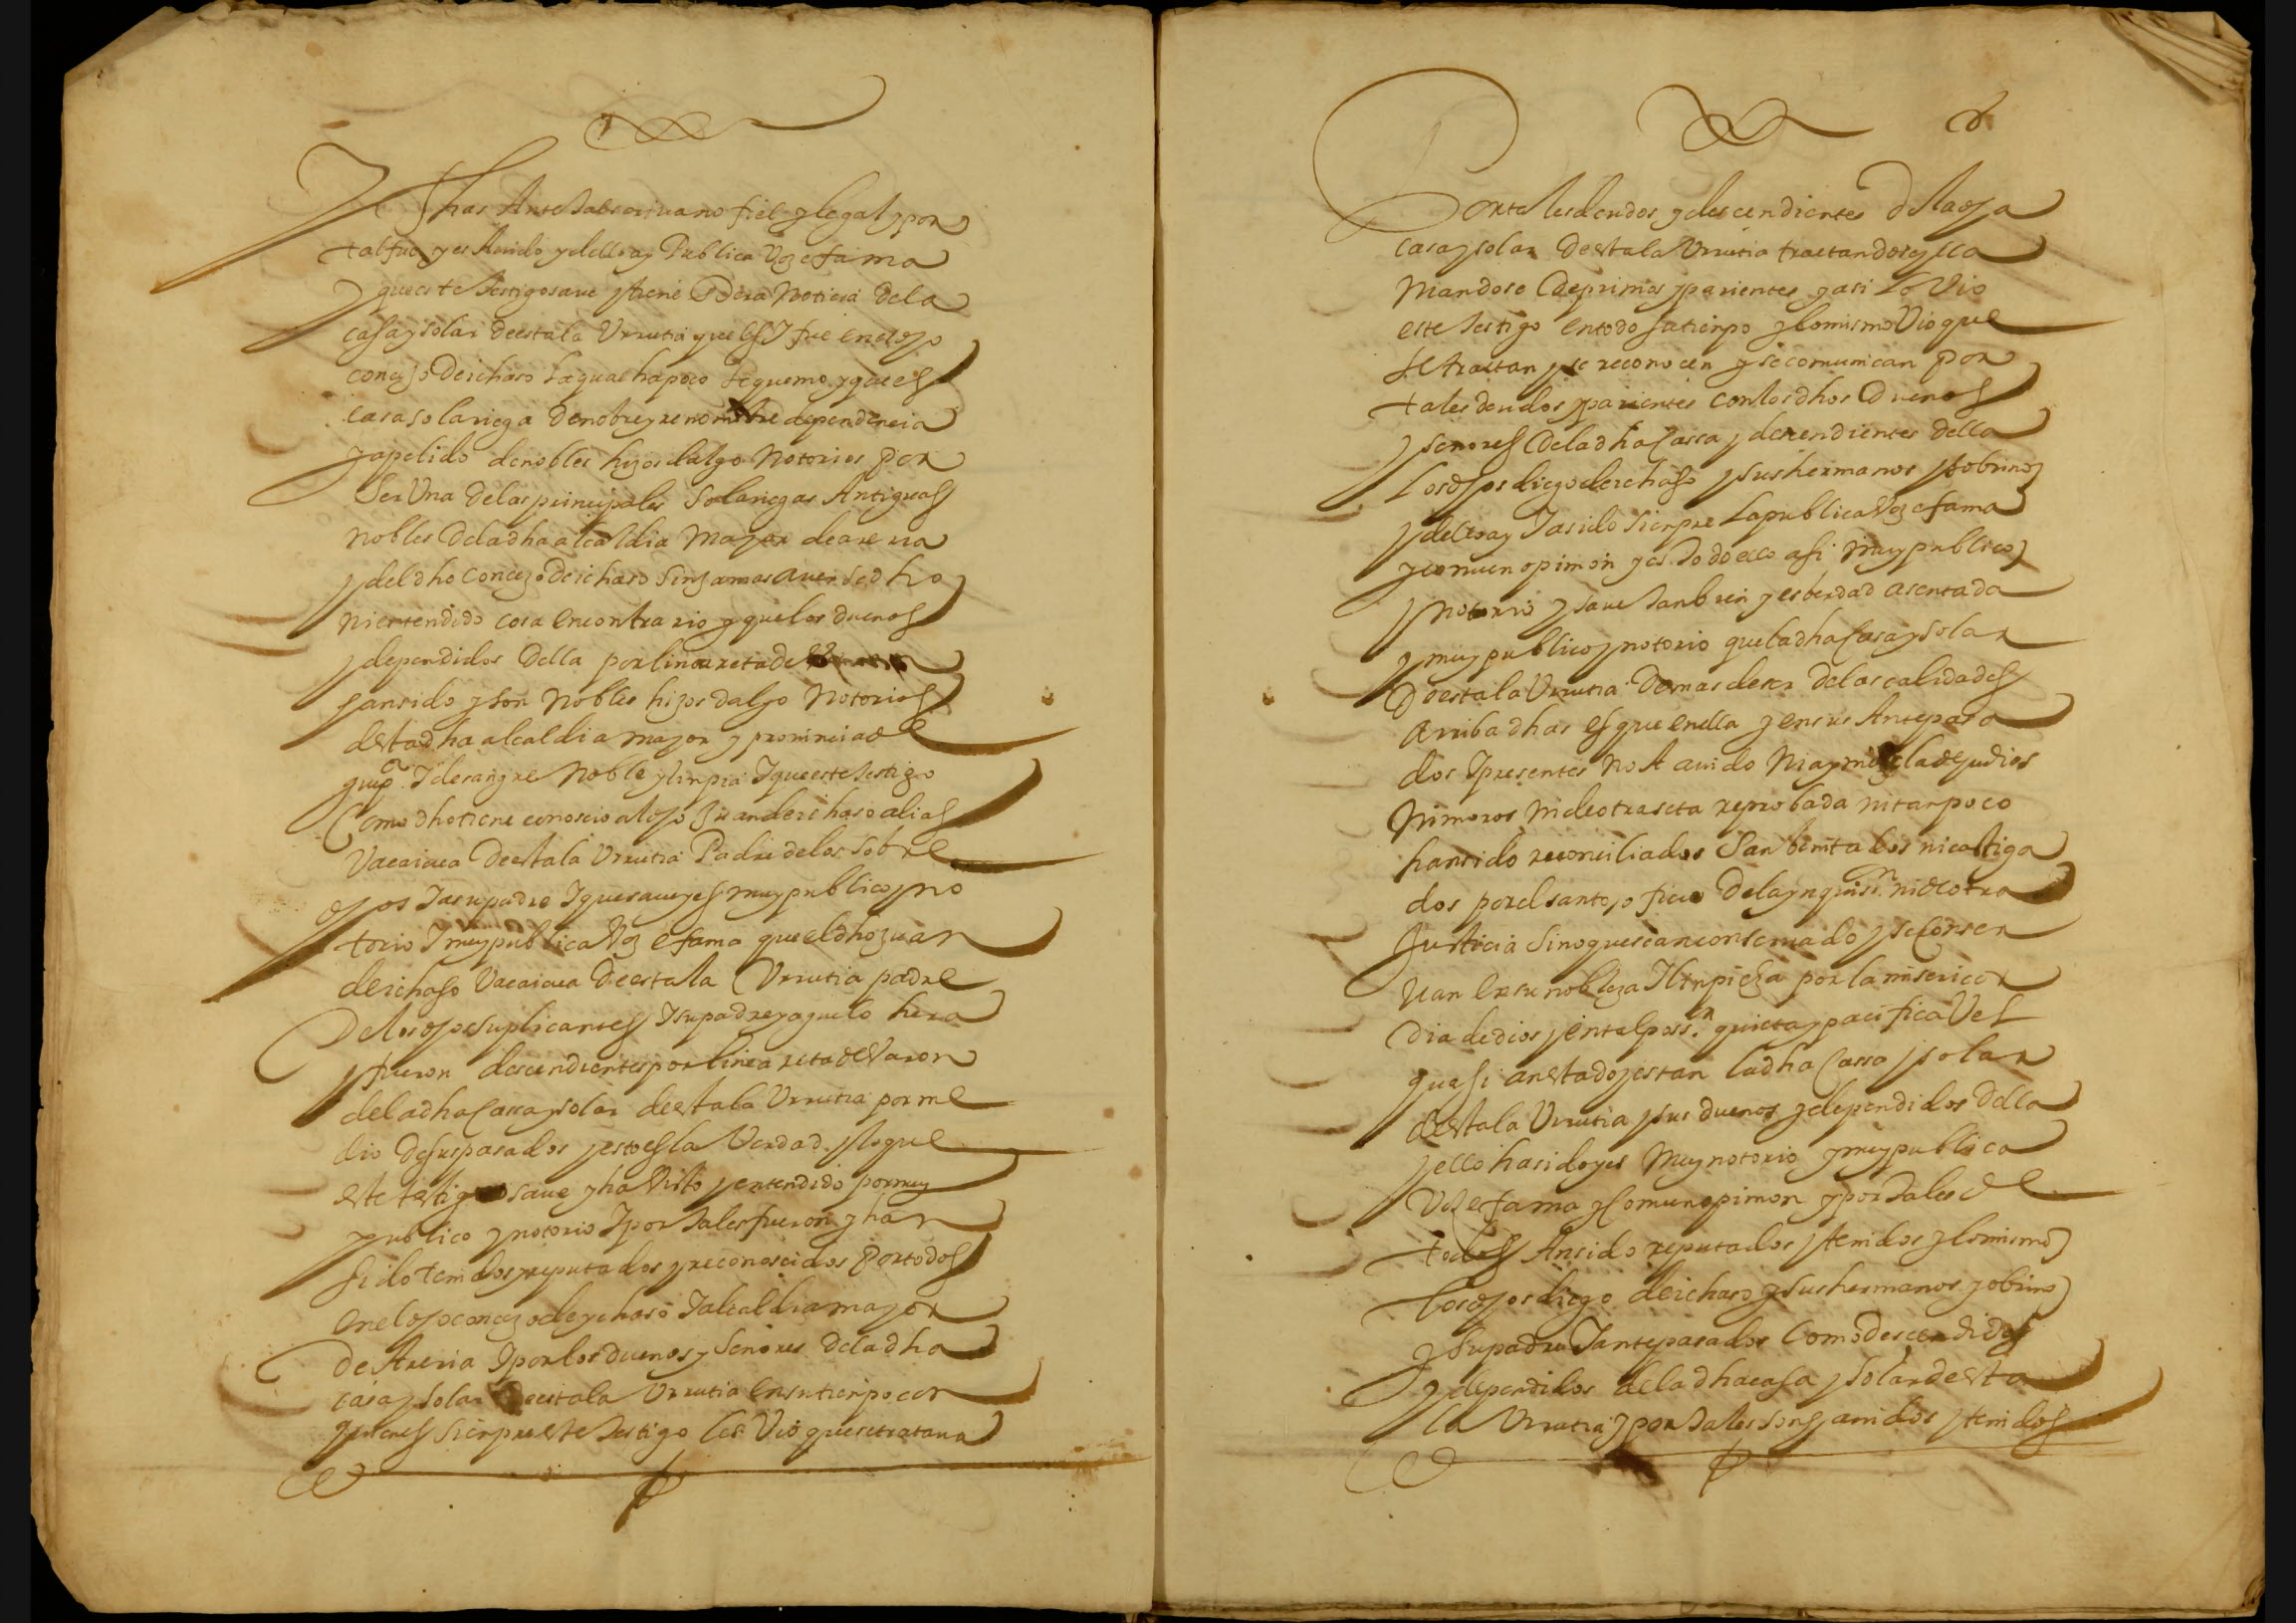 fhas Ante tal escriuano fiel y legal y por
tal fue y es Auido y dello ay Publica Voz e fama
y que este testigo saue y tiene Verdadera Noticia de la
casa y solar de estala Vrrutia que es y fue en el dho
concejo de ichaso la qual ha poco se quemo y que es
casa solariega de nobre y renombre dependencia
y apelido de nobles hijos dalgo Notorios por
Ser Vna de las principales Solariegas Antiguas
nobles de la dha alcaldia Mayor de areria
y del dho Concejo de ichaso sin jamas auerse dho
ni entendido cosa en contrario y que los duenos
y dependidos della por linea reta de
han sido y son Nobles hijos dalgo Notorios
desta dha alcaldia mayor y prouincia de
guipa. I de sangre Noble y linpia I que este testigo
Como dho tiene conoscio al dho Juan de ichaso alias
Vacaicua de estala Vrrutia Padre de los sobre
dhos I a su padre I que saue y es muy publico y no
torio I muy publica Voz e fama que el dho juan
de ichaso Vacaicua de estala Vrrutia padre
De los dhos suplicantes I su padre y aguelo hera
y fueron descendientes por linea reta de Varon
de la dha Cassa y solar de estala Vrrutia por me
dio de sus pasados y esto es la Verdad y lo que
este testigo saue y ha Visto y entendido por muy
publico y notorio I por tales fueron y han
sido tenidos y reputados y reconoscidos por todos
en el dho concejo de ychaso I alcaldia mayor
de Areria I por los duenos y Senores de la dha
casa y solar de estala Vrrutia en su tienpo con
quienes sienpre este testigo les Vio que se trataua
Por tales deudos y descendientes de la dha
casa y solar de estala Vrrutia tractandose y lla
mandose de primos y parientes y asi lo Vio
este testigo en todo su tienpo y lo mismo Vio que
se tractan y se reconocen y se comunican por
tales deudos y parientes con los dhos Duenos
y senores de la dha Cassa y decendientes della
Los dhos diego de ichaso y sus hermanos y sobrinos
y dello ay I a sido sienpre La publica Voz e fama
y comun opinion y es todo ello asi muy publico
y notorio y saue tanbien y es berdad asentada
y muy publico y notorio que la dha Casa y solar
De estala Vrrutia demas de ser de las calidades
arriba dhas es que en ella y en sus Antepasa
dos I presentes No A auido Ni ay mezcla de judios
Ni moros ni de otra seta reprobada ni tanpoco
han sido reconciliados San benitados ni castiga
dos por el santo oficio de la ynquisn. ni de otra
Justicia sino que se an conseruado y se Conser
uan en su nobleza I linpieza por la misericor
dia de dios y en tal possn. quieta y pacifica Vel
quasi an estado y estan la dha Cassa y solar
de estala Vrrutia y sus duenos y dependidos della
y ello ha sido y es Muy notorio y muy publica
Voz e fama y Comun opinion y por tales de
todos An sido reputados y tenidos y lo mismo
los dhos diego de ichaso y sus hermanos y sobrino
y su padre I antepasados Como descendidos
y dependidos de la dha casa y solar de esta
la Vrrutia y por tales son auidos y tenidos